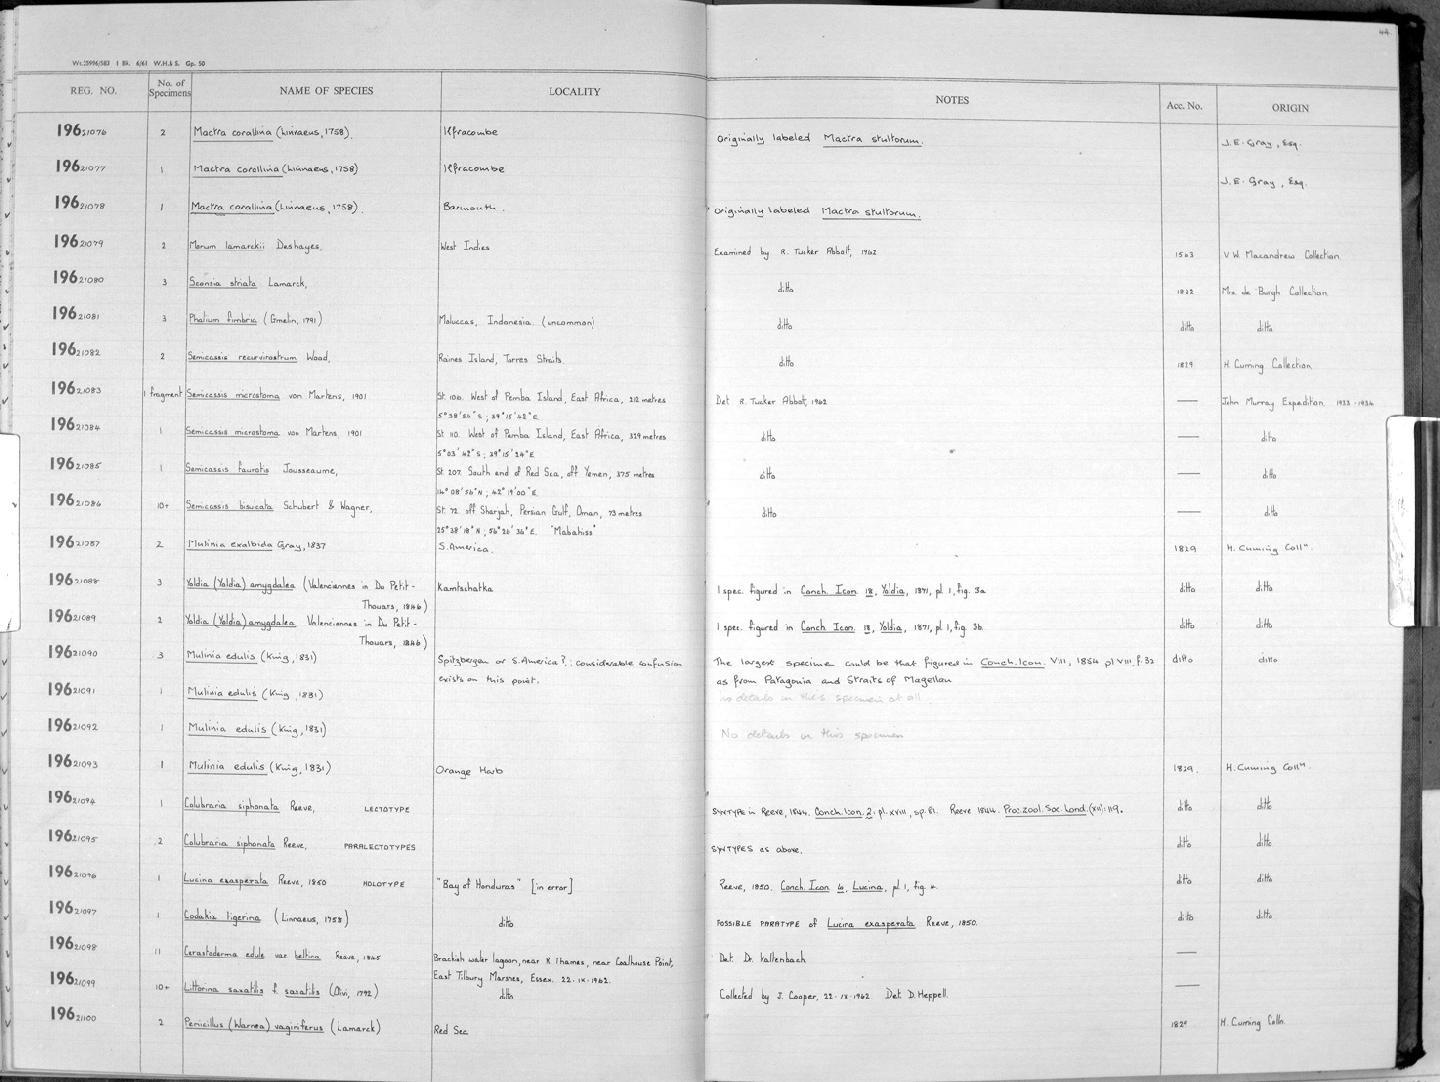 44.
Wt.25996/583 1 Bk. 6/61 W.H.& S. Gp. 50
REG. NO. No. of Specimens NAME OF SPECIES LOCALITY NOTES Acc. No. ORIGIN
196 21076 2 Mactra corallina (Linnaeus, 1758). Ilfracombe Originally labeled Mactra stultorum. J. E. Gray, Esq.
196 21077 1 Mactra corallina (Linnaeus, 1758) Ilfracombe J. E. Gray, Esq.
196 21078 1 Mactra corallina (Linnaeus, 1758). Barmouth. Originally labeled Mactra stultorum.
196 21079 2 Morum lamarckii Deshayes, West Indies Examined by R. Tucker Abbott, 1962 1563 V.W. Macandrew Collection
196 21080 3 Sconsia striata Lamarck, ditto 1822 Mrs de Burgh Collection
196 21081 3 Phalium fimbria (Gmelin, 1791) Moluccas, Indonesia. (uncommon) ditto ditto ditto
196 21082 2 Semicassis recurvirostrum Wood, Raines Island, Torres Straits ditto 1829 H. Cuming Collection
196 21083 1 fragment Semicassis microstoma von Martens, 1901 St. 106. West of Pemba Island, East Africa, 212 metres Det R. Tucker Abbot, 1962 — John Murray Expedition 1933-1934
5° 38' 54" S ; 39° 15' 42" E
196 21084 1 Semicassis microstoma von Martens 1901 St. 110. West of Pemba Island, East Africa, 329 metres ditto — ditto
5° 03' 42" S ; 39° 15' 24" E
196 21085 1 Semicassis faurotis Jousseaume, St. 207. South end of Red Sea, off Yemen, 375 metres ditto — ditto
14° 08' 56" N ; 42° 19' 00" E
196 21086 10+ Semicassis bisucata Schubert & Wagner, St. 72. off Sharjah, Persian Gulf, Oman, 73 metres ditto — ditto
25° 38' 18" N ; 56° 26' 36" E. "Mabahiss"
196 21087 2 Mulinia exalbida Gray, 1837 S. America. 1829 H. Cuming Colln.
196 21088 3 Yoldia (Yoldia) amygdalea (Valenciennes in Du Petit- Kamtschatka 1 spec. figured in Conch. Icon. 18, Yoldia, 1871, pl 1, fig. 3a ditto ditto
Thouars, 1846)
196 21089 2 Yoldia (Yoldia) amygdalea Valenciennes in Du Petit- 1 spec. figured in Conch. Icon. 18, Yoldia, 1871, pl 1, fig 3b. ditto ditto
Thouars, 1846)
196 21090 3 Mulinia edulis (King, 831) Spitzbergen or S. America?.: considerable confusion The largest specimen could be that figured in Conch. Icon. VIII, 1854 pl VIII, f. 32 ditto ditto
exists on this point. as from Patagonia and Straits of Magellan
196 21091 1 Mulinia edulis (King, 1831) no details on this specimen at all.
196 21092 1 Mulinia edulis (King, 1831) No details on this specimen
196 21093 1 Mulinia edulis (King, 1831) Orange Harb 1829. H. Cuming Colln.
196 21094 1 Colubraria siphonata Reeve, LECTOTYPE SYNTYPE in Reeve, 1844. Conch. Icon. 2: pl. XVIII, sp. 81. Reeve 1844. Proc. zool. Soc. Lond. (XII): 119. ditto ditto
196 21095 2 Colubraria siphonata Reeve, PARALECTOTYPES SYNTYPES as above. ditto ditto
196 21096 1 Lucina exasperata Reeve, 1850 HOLOTYPE "Bay of Honduras" [in error] Reeve, 1850. Conch. Icon 6, Lucina, pl 1, fig 4. ditto ditto
196 21097 1 Codakia tigerina (Linnaeus, 1758) ditto POSSIBLE PARATYPE of Lucina exasperata Reeve, 1850. ditto ditto
196 21098 11 Cerastoderma edule var beltina Reeve, 1845 Brackish water lagoon, near R Thames, near Coalhouse Point, Det. Dr. Kaltenbach —
East Tilbury Marshes, Essex. 22-IX-1962.
196 21099 10+ Littorina saxatilis f. saxatilis (Olivi, 1792) ditto Collected by J. Cooper, 22-IX-1962 Det D. Heppell. —
196 21100 2 Penicillus (Warnea) vaginiferus (Lamarck) Red Sea 1829 H. Cuming Colln.